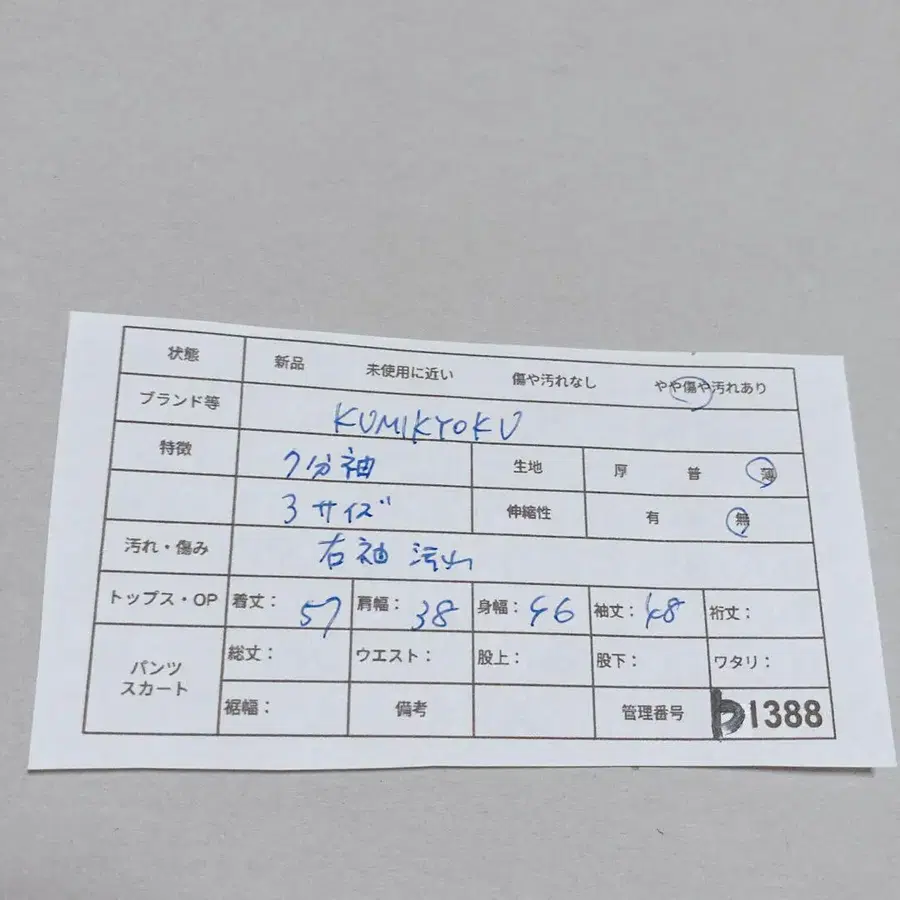 状態 新品 未使用に近い 傷や汚れなし やや傷や汚れあり
ブランド等 KUMIKYOKU
特徴 7分袖 生地 厚 普 薄
3サイズ 伸縮性 有 無
汚れ・傷み 右袖 汚れ
トップス・OP 着丈: 57 肩幅: 38 身幅: 46 袖丈: 48 裄丈:
パンツ スカート 総丈: ウエスト: 股上: 股下: ワタリ:
裾幅: 備考 管理番号 b1388